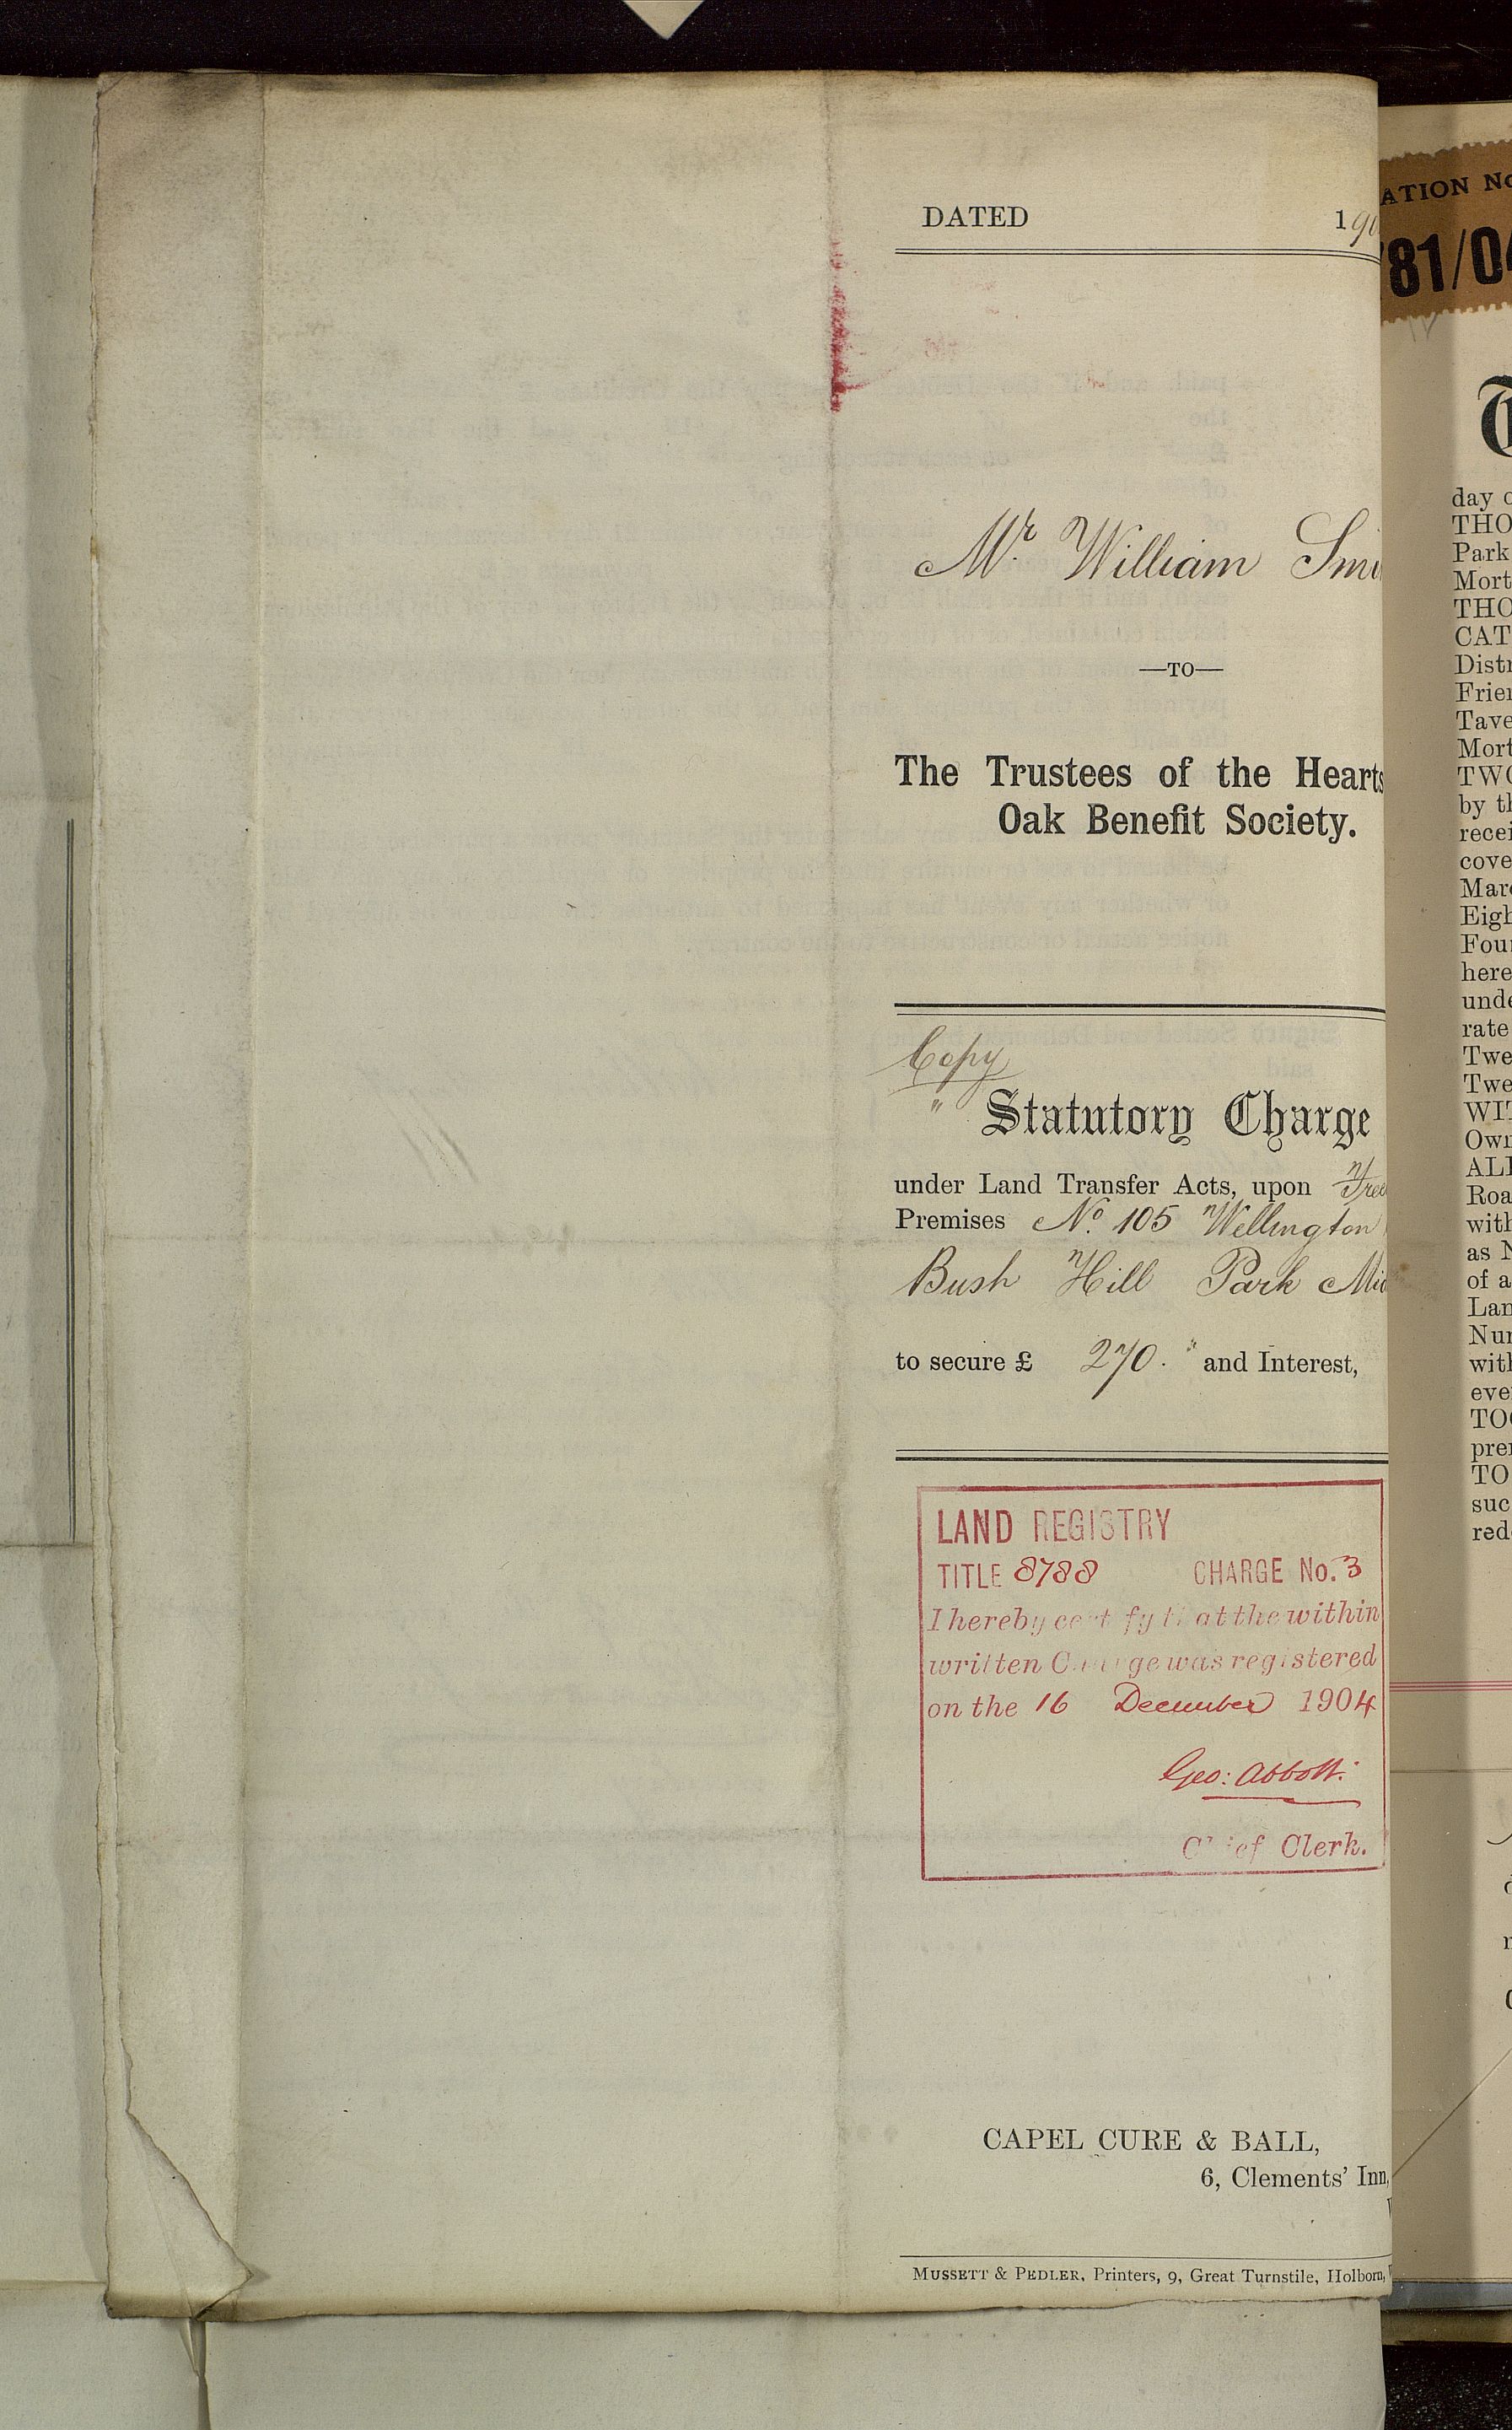 DATED 190
Mr. William Smi
—TO—
The Trustees of the Hearts
Oak Benefit Society.
Copy
Statutory Charge
under Land Transfer Acts, upon Free
Premises No. 105 Wellington
Bush Hill Park Mid
to secure £ 270. and Interest,
LAND REGISTRY
TITLE 8788 CHARGE No. 3
I hereby certify that the within
written Charge was registered
on the 16 December 1904
Geo: Abbott.
Chief Clerk.
CAPEL CURE & BALL,
6, Clements' Inn,
MUSSETT & PEDLER, Printers, 9, Great Turnstile, Holborn,
ATION No
81/04
day o
THO
Park
Mort
THO
CAT
Distr
Frien
Tave
Mort
TWO
by th
recei
cove
Marc
Eigh
Four
here
unde
rate
Twe
Twe
WIT
Own
ALL
Roa
with
as N
of a
Lan
Num
with
eve
TOG
pre
TO
suc
red